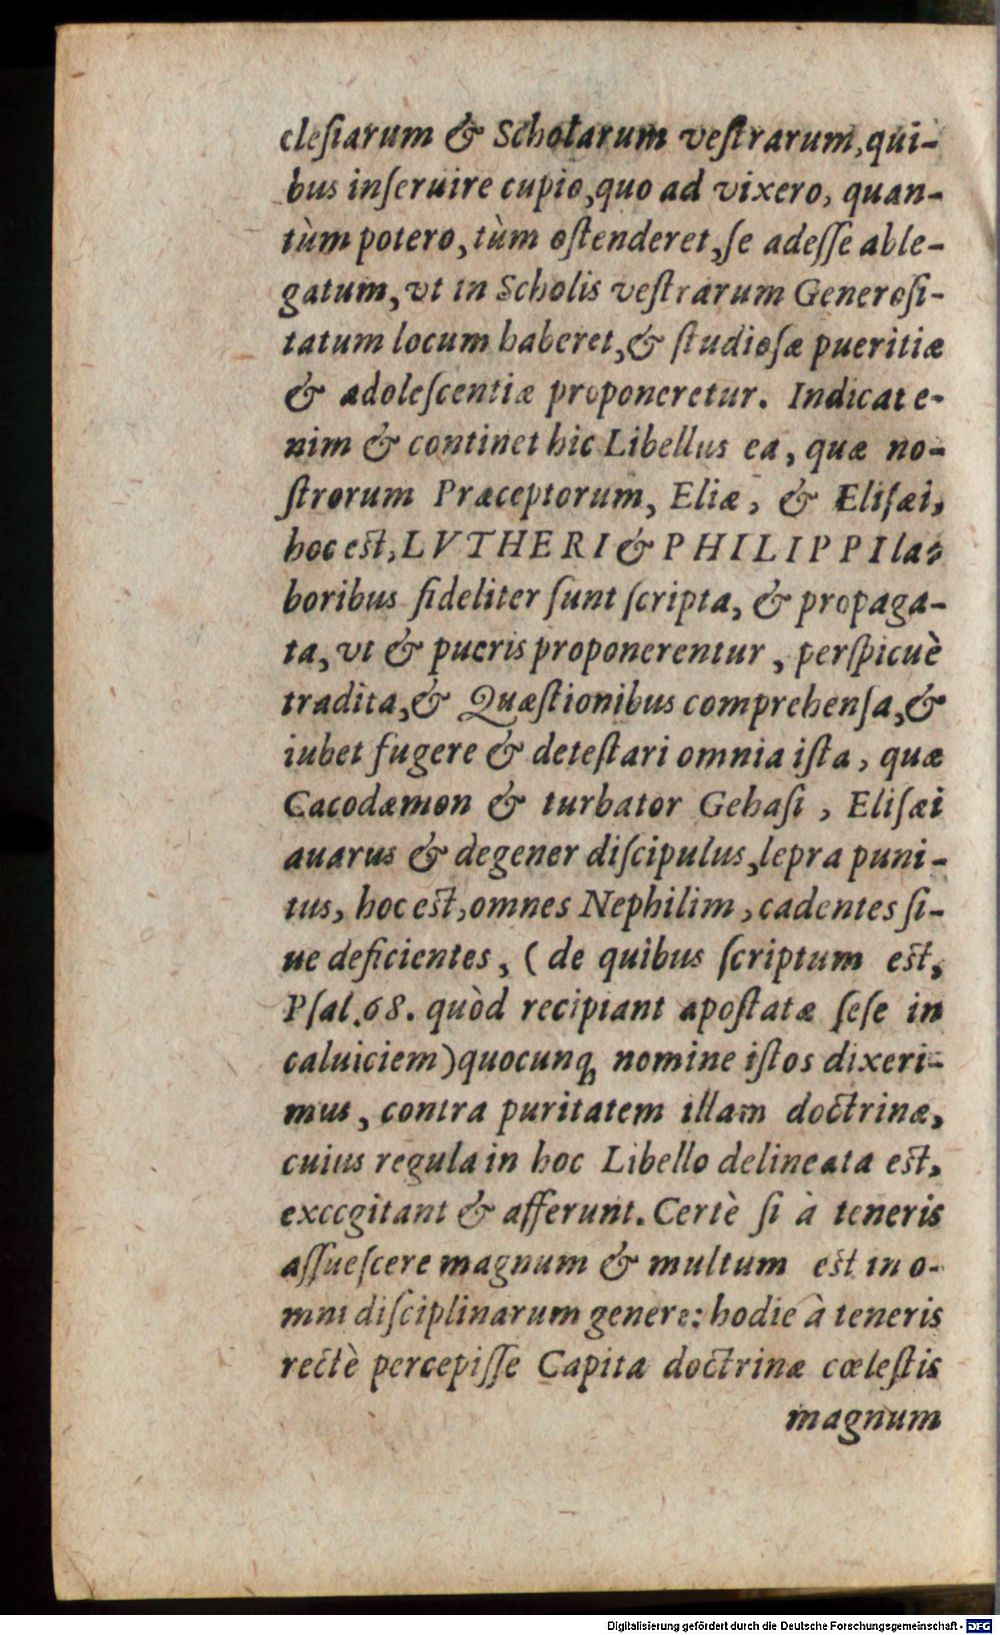 cleſiarum & Scholarum veſtrarum, qui-
bus inſeruire cupio, quo ad vixero, quan-
tùm potero, tùm oſtenderet, ſe adeſſe able-
gatum, vt in Scholis veſtrarum Generoſi-
tatum locum haberet, & ſtudioſæ pueritiæ
& adoleſcentiæ proponeretur. Indicat e-
nim & continet hic Libellus ea, quæ no-
ſtrorum Præceptorum, Eliæ, & Eliſæi,
hoc eſt, LVTHERI & PHILIPPI la-
boribus fideliter ſunt ſcripta, & propaga-
ta, vt & pueris proponerentur, perſpicuè
tradita, & Quæſtionibus comprehenſa, &
iubet fugere & deteſtari omnia iſta, quæ
Cacodæmon & turbator Gehaſi, Eliſæi
auarus & degener diſcipulus, lepra puni-
tus, hoc eſt, omnes Nephilim, cadentes ſi-
ue deficientes, (de quibus ſcriptum eſt,
Pſal. 68. quòd recipiant apoſtatæ ſeſe in
caluiciem) quocunqꝫ nomine iſtos dixeri-
mus, contra puritatem illam doctrinæ,
cuius regula in hoc Libello delineata eſt,
excogitant & afferunt. Certè ſi à teneris
aſſueſcere magnum & multum eſt in o-
mni diſciplinarum genere: hodie à teneris
rectè percepiſſe Capita doctrinæ cœleſtis
magnum
Digitalisierung gefördert durch die Deutsche Forschungsgemeinschaft - DFG